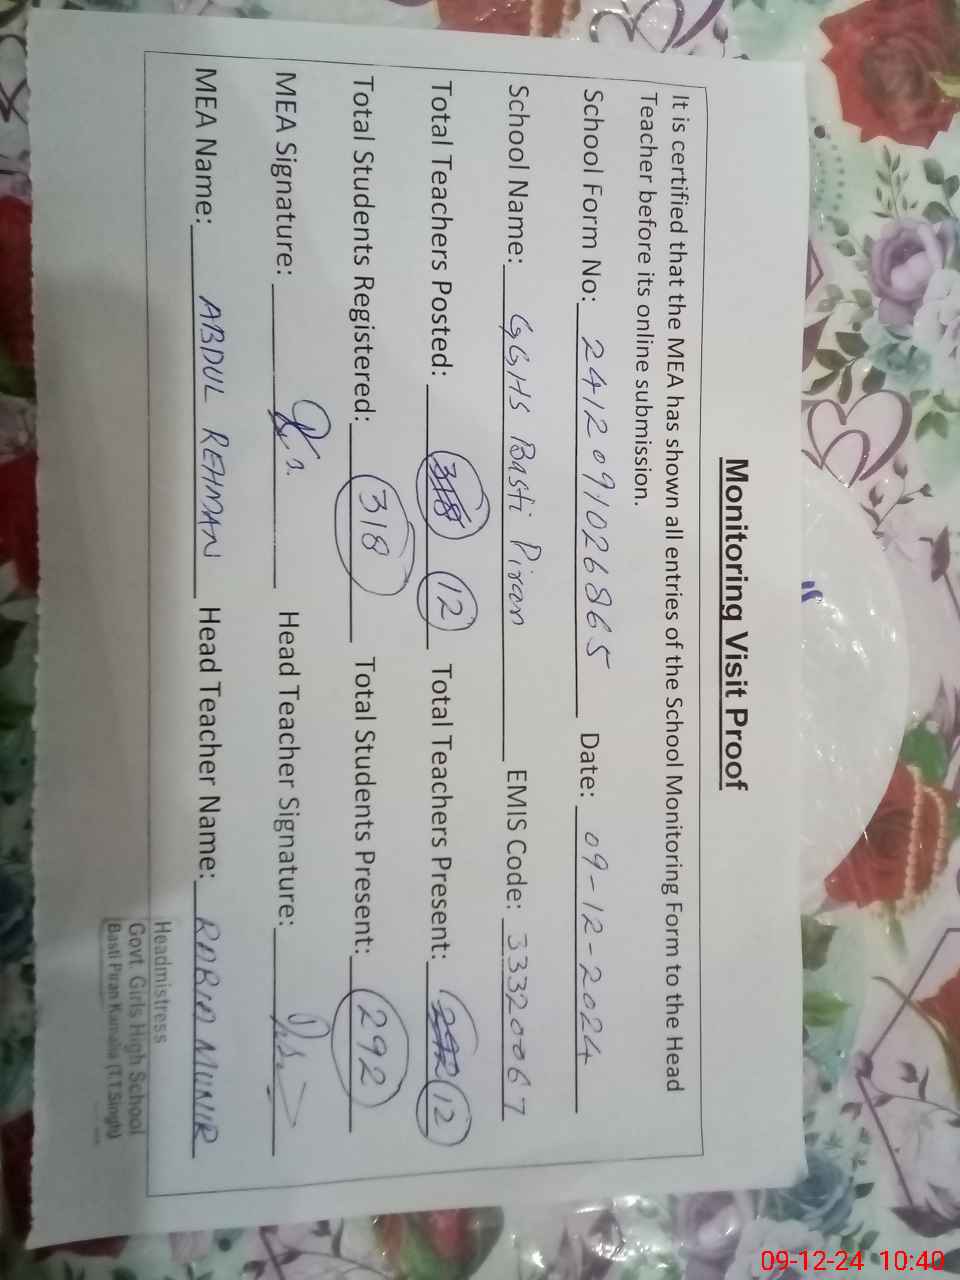 Monitoring Visit Proof
It is certified that the MEA has shown all entries of the School Monitoring Form to the Head
Teacher before its online submission.
School Form No: 2412091026865 Date: 09-12-2024
School Name: GGHS Basti Piran EMIS Code: 33320067
Total Teachers Posted: 318 12 Total Teachers Present: 292 12
Total Students Registered: 318 Total Students Present: 292
MEA Signature: Head Teacher Signature:
MEA Name: ABDUL REHMAN Head Teacher Name: RABIA MUNIR
Headmistress
Govt. Girls High School
Basti Piran (T.T.Singh)
09-12-24 10:40